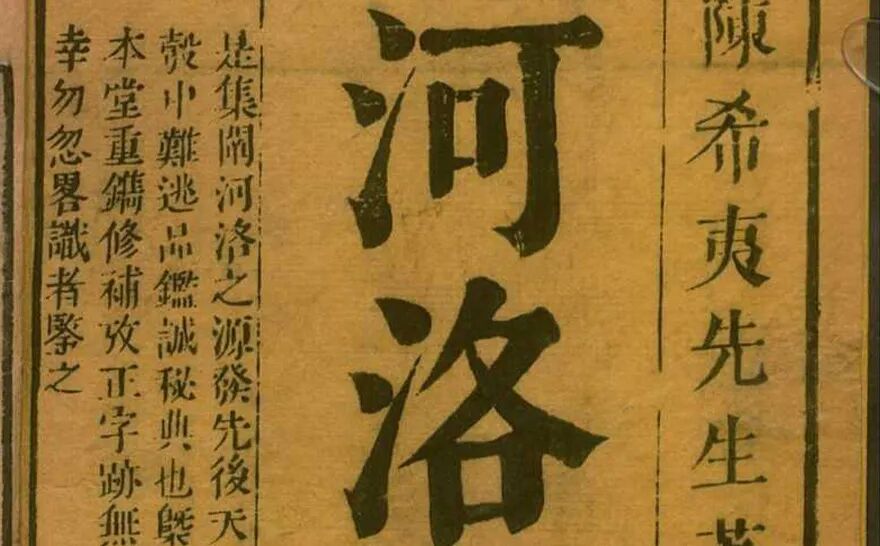 陳希夷先生著
河洛
是集闡河洛之源發先後天
彀中難逃品鑑誠秘典也
本堂重鐫修補攷正字跡無
幸勿忽畧識者鑒之